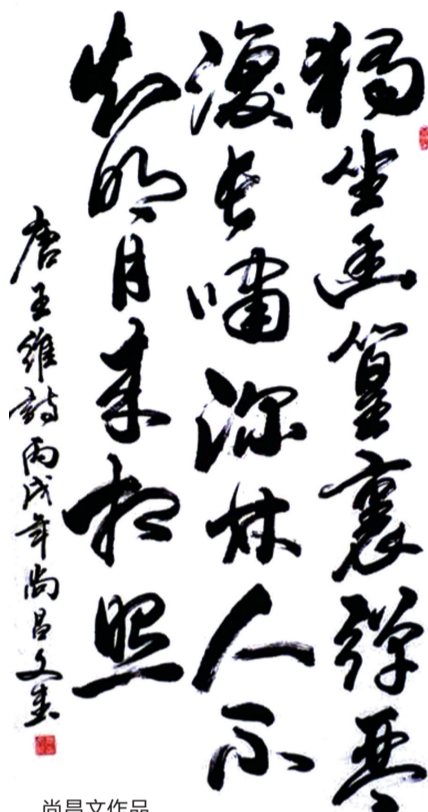 獨坐幽篁裏彈琴
復長嘯深林人不
知明月来相照
唐王維詩丙戌年尚昌文書
尚昌文作品